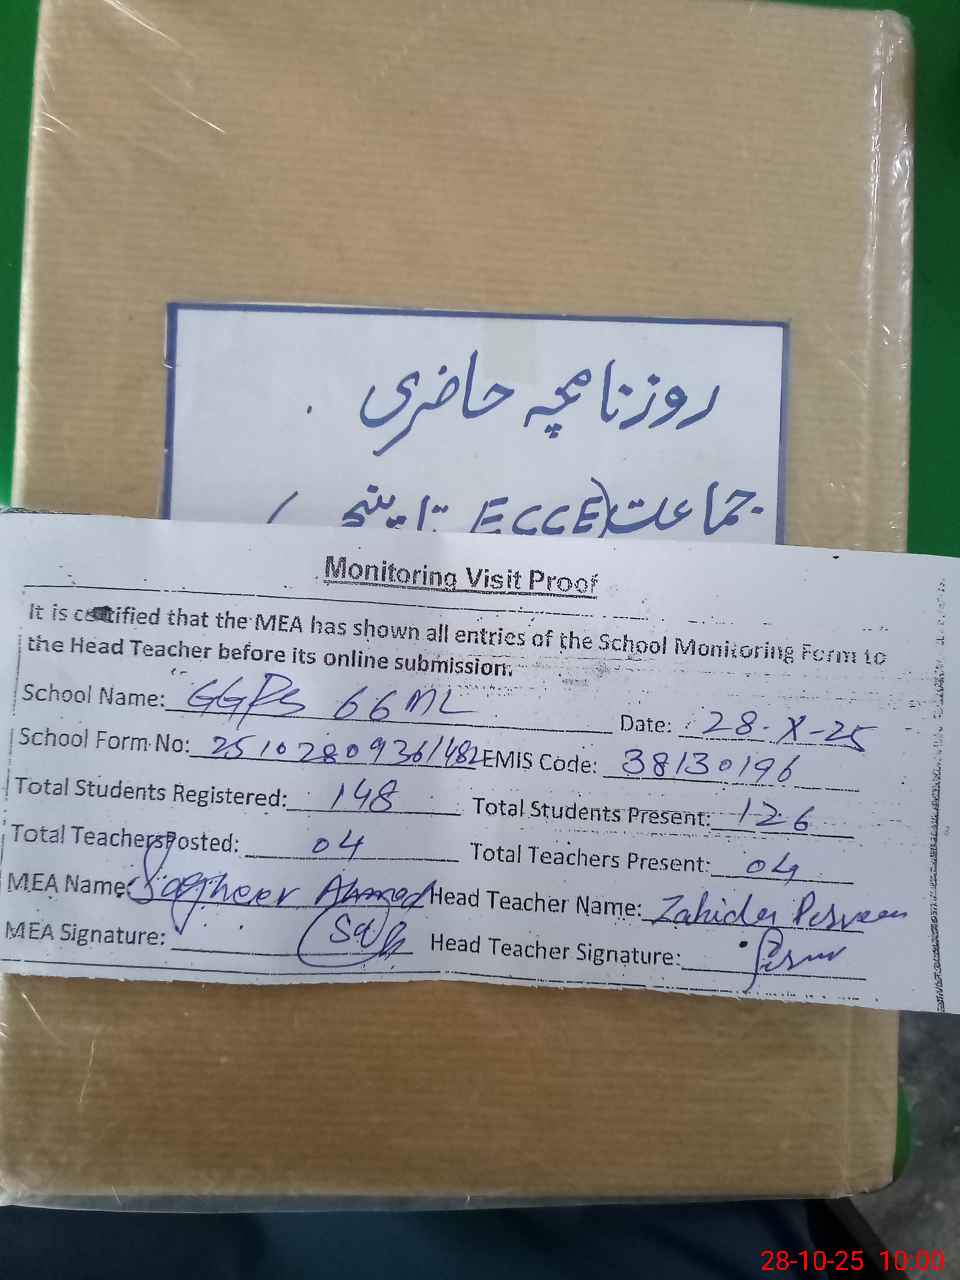 روزنامچہ حاضری
جماعت (ECCE تا پنجم)
Monitoring Visit Proof
It is certified that the MEA has shown all entries of the School Monitoring Form to
the Head Teacher before its online submission.
School Name: GGPS 66 ML Date: 28-X-25
School Form No: 25102809361482 EMIS Code: 38130196
Total Students Registered: 148 Total Students Present: 126
Total Teachers Posted: 04 Total Teachers Present: 04
MEA Name: Sagheer Ahmed Head Teacher Name: Zahida Perveen
MEA Signature: Head Teacher Signature:
28-10-25 10:00